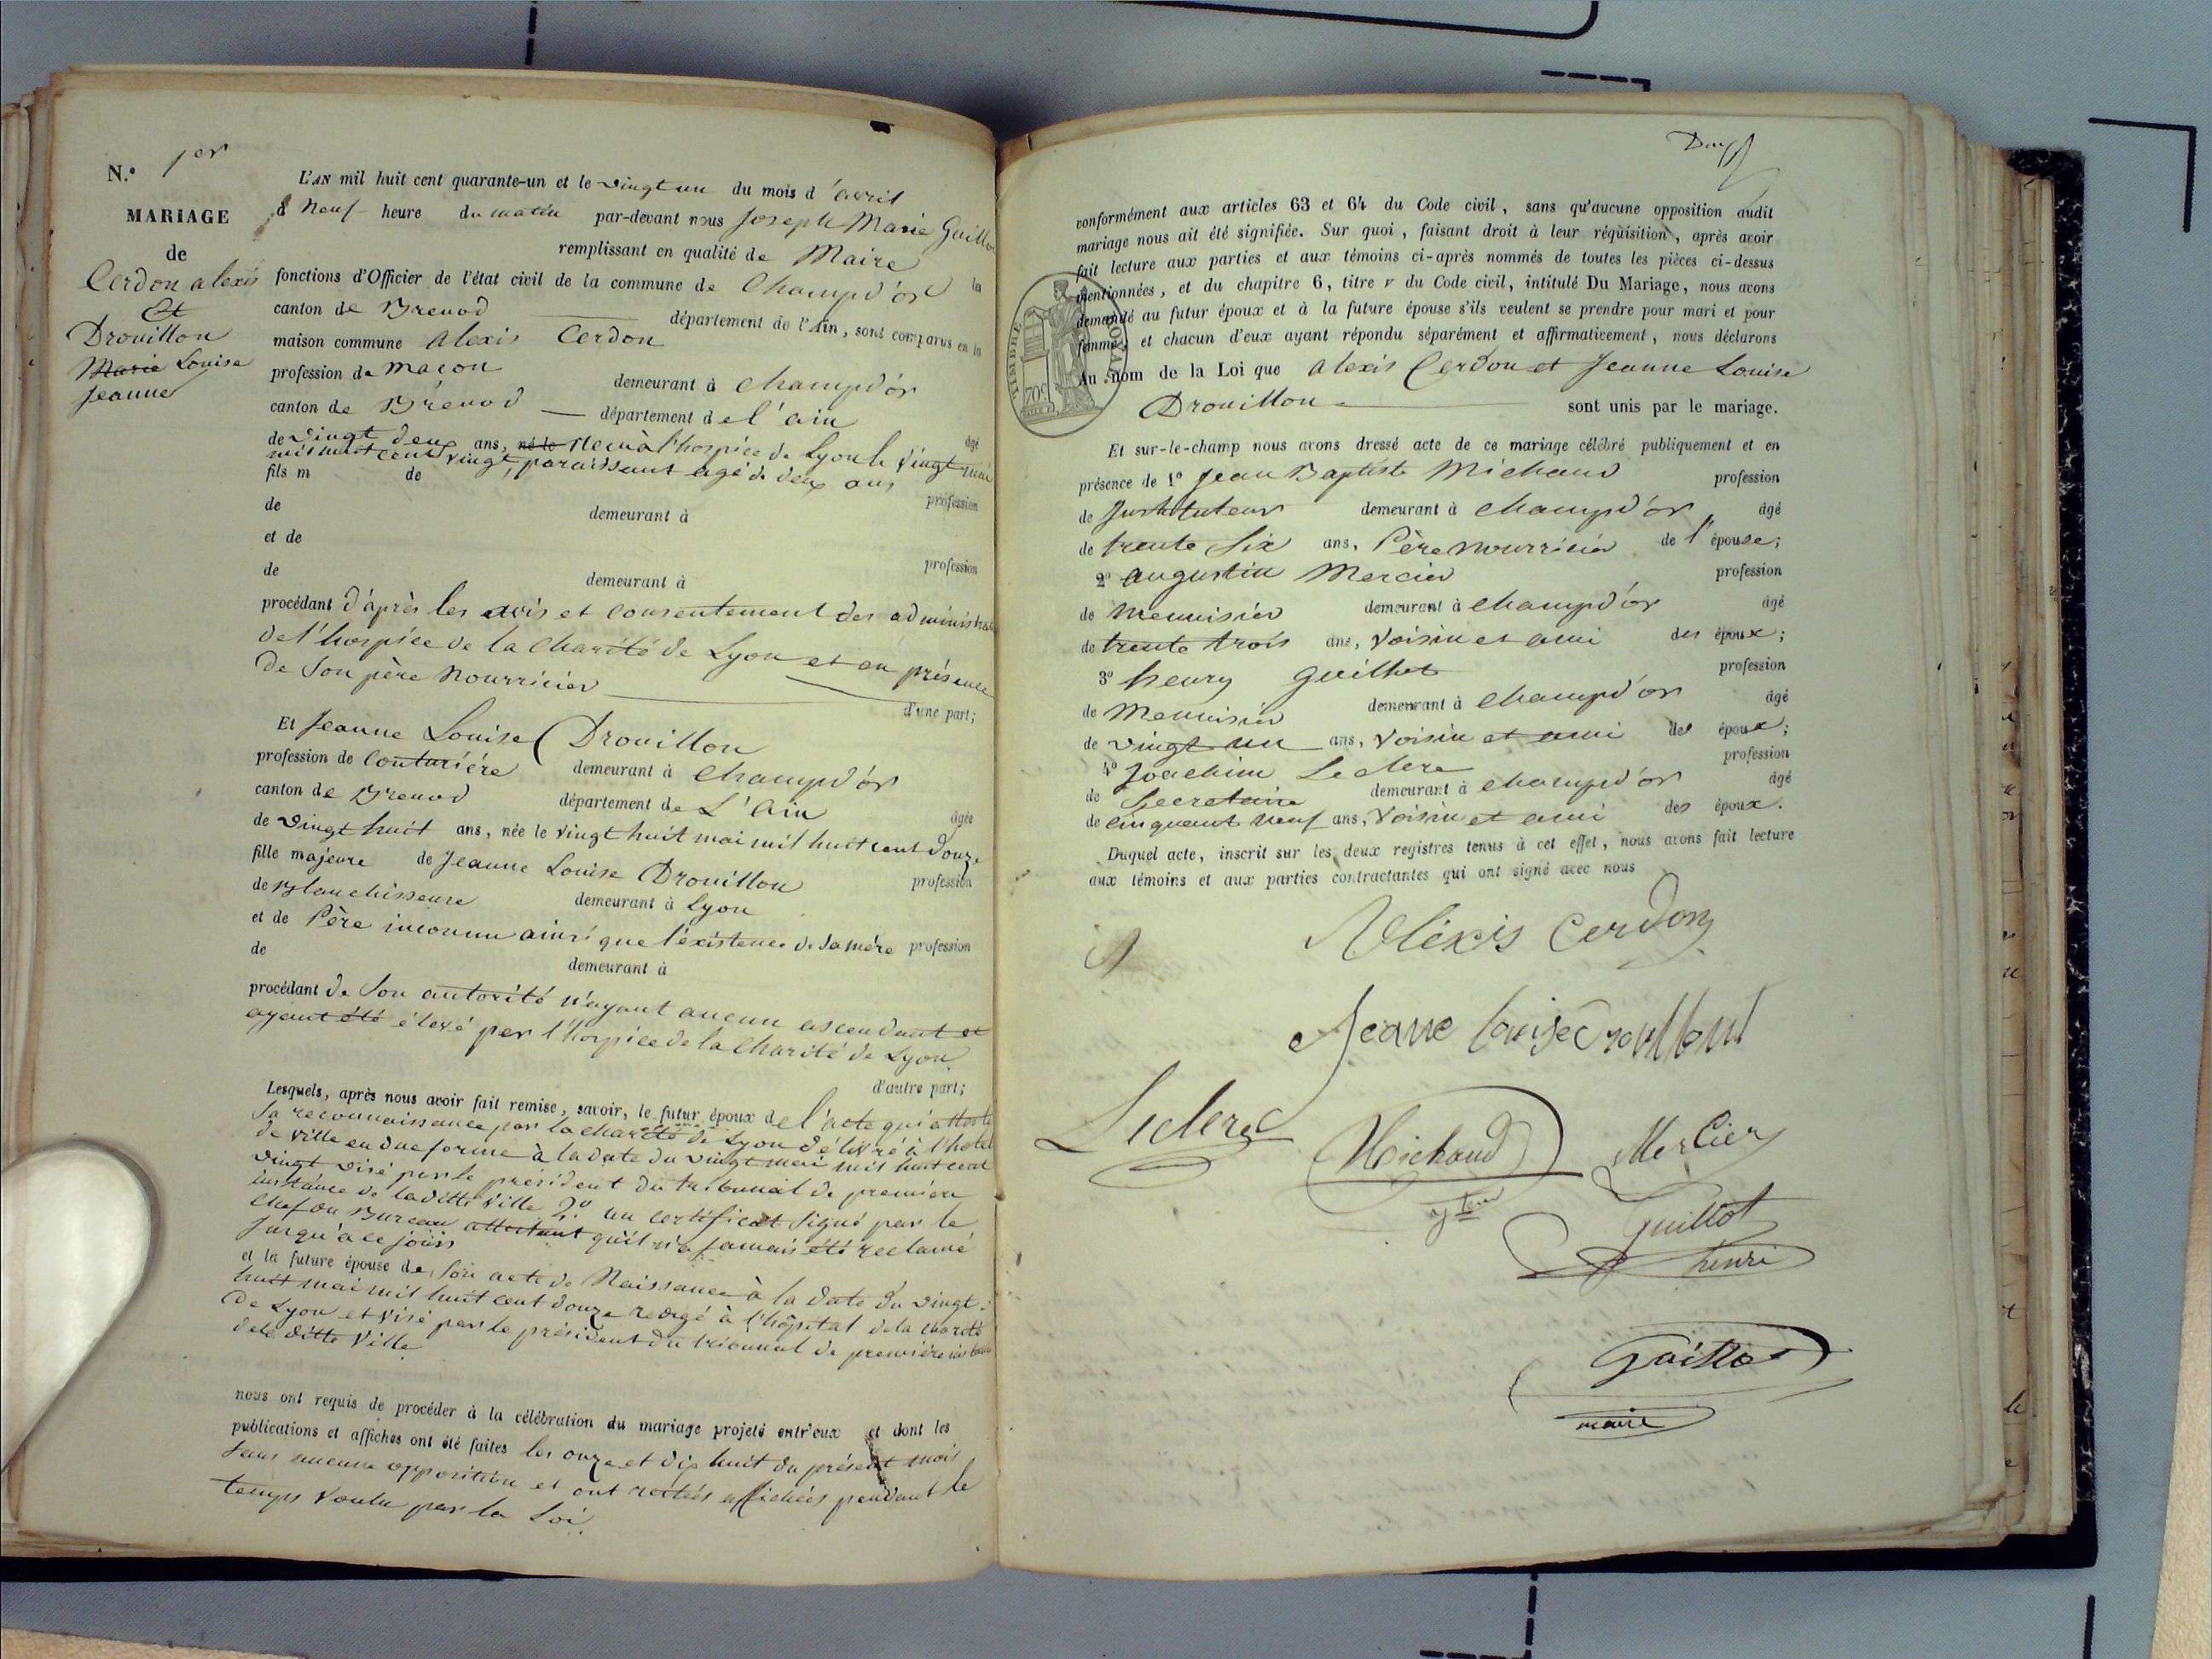 N.° 1er
MARIAGE
de
Cerdon alexis
Et
Drouillon
Marie Louise
Jeanne
L'AN mil huit cent quarante-un et le vingt un du mois d'avril
à Neuf heure du matin par-devant nous Joseph Marie Guillo
remplissant en qualité de Maire la
fonctions d'Officier de l'état civil de la commune de Champd'or
canton de Brenod département de l'Ain, sont comparus en la
maison commune Alexis Cerdon
profession de maçon demeurant à Champd'or
canton de Brénod département de l'ain âgé
de vingt deux ans, né le recu à l'hospice de Lyon le vingt mai
mil huit cent vingt, paraissant agé de deux ans
fils m de profession
de demeurant à
et de profession
de demeurant à
procédant d'après les avis et consentement des administra
de l'hospice de la Charité de Lyon et en présence
de son père Nourricier d'une part;
Et Jeanne Louise Drouillon
profession de Couturière demeurant à Champd'or
canton de Brenod département de L'Ain âgée
de vingt huit ans, née le vingt huit mai mil huit cent douze
fille majeure de Jeanne Louise Drouillon profession
de Blanchisseure demeurant à Lyon
et de Père inconnu ainsi que l'éxistence de sa mère profession
de demeurant à
procédant de son autorité n'ayant aucun ascendant et
ayant été élevé par l'hospice de la Charité de Lyon
d'autre part;
Lesquels, après nous avoir fait remise, savoir, le futur époux de l'acte qui atteste
sa reconnaissance par la charité de Lyon délivré à l'hotel
de ville en due forme à la date du vingt mai mil huit cent
vingt visé par le président du tribunal de première
instance de laditte ville 2° un certificat signé par le
Chef du Bureau attestant qu'il n'a jamais été reclamé
jusqu'à ce jour
et la future épouse de son acte de Naissance à la date du vingt
huit mai mil huit cent douze redigé à l'hôpital de la charité
de Lyon et visé par le président du tribunal de première instance
dela ditte Ville
nous ont requis de procéder à la célébration du mariage projeté entr'eux et dont les
publications et affiches ont été faites les onze et dix huit du présent mois
sans aucune opposition et ont restées affichées pendant le
temps voulu par la Loi.
conformément aux articles 63 et 64 du Code civil, sans qu'aucune opposition audit
mariage nous ait été signifiée. Sur quoi, faisant droit à leur réquisition, après avoir
fait lecture aux parties et aux témoins ci-après nommés de toutes les pièces ci-dessus
mentionnées, et du chapitre 6, titre v du Code civil, intitulé Du Mariage, nous avons
demandé au futur époux et à la future épouse s'ils veulent se prendre pour mari et pour
femme; et chacun d'eux ayant répondu séparément et affirmativement, nous déclarons
Au nom de la Loi que Alexis Cerdon et Jeanne Louise
Drouillon sont unis par le mariage.
TIMBRE ROYAL
70c
Et sur-le-champ nous avons dressé acte de ce mariage célébré publiquement et en
présence de 1° Jean Baptiste Michaud profession
de Justituteur demeurant à Champd'or âgé
de trente six ans, Père nourricier de l'épouse;
2° Augustin Mercier profession
de Menuisier demeurant à Champd'or âgé
de trente trois ans, voisin et ami des époux;
3° henry Guillot profession
de Menuisier demeurant à Champd'or âgé
de vingt un ans, voisin et ami des époux;
4° Joachim Leclerc profession
de Secretaire demeurant à Champd'or âgé
de cinquant neuf ans, voisin et ami des époux.
Duquel acte, inscrit sur les deux registres tenus à cet effet, nous avons fait lecture
aux témoins et aux parties contractantes qui ont signé avec nous
Aléxis Cerdon
Leclerc
Michaud
Mercier
Guillot
henri
Guillot
maire